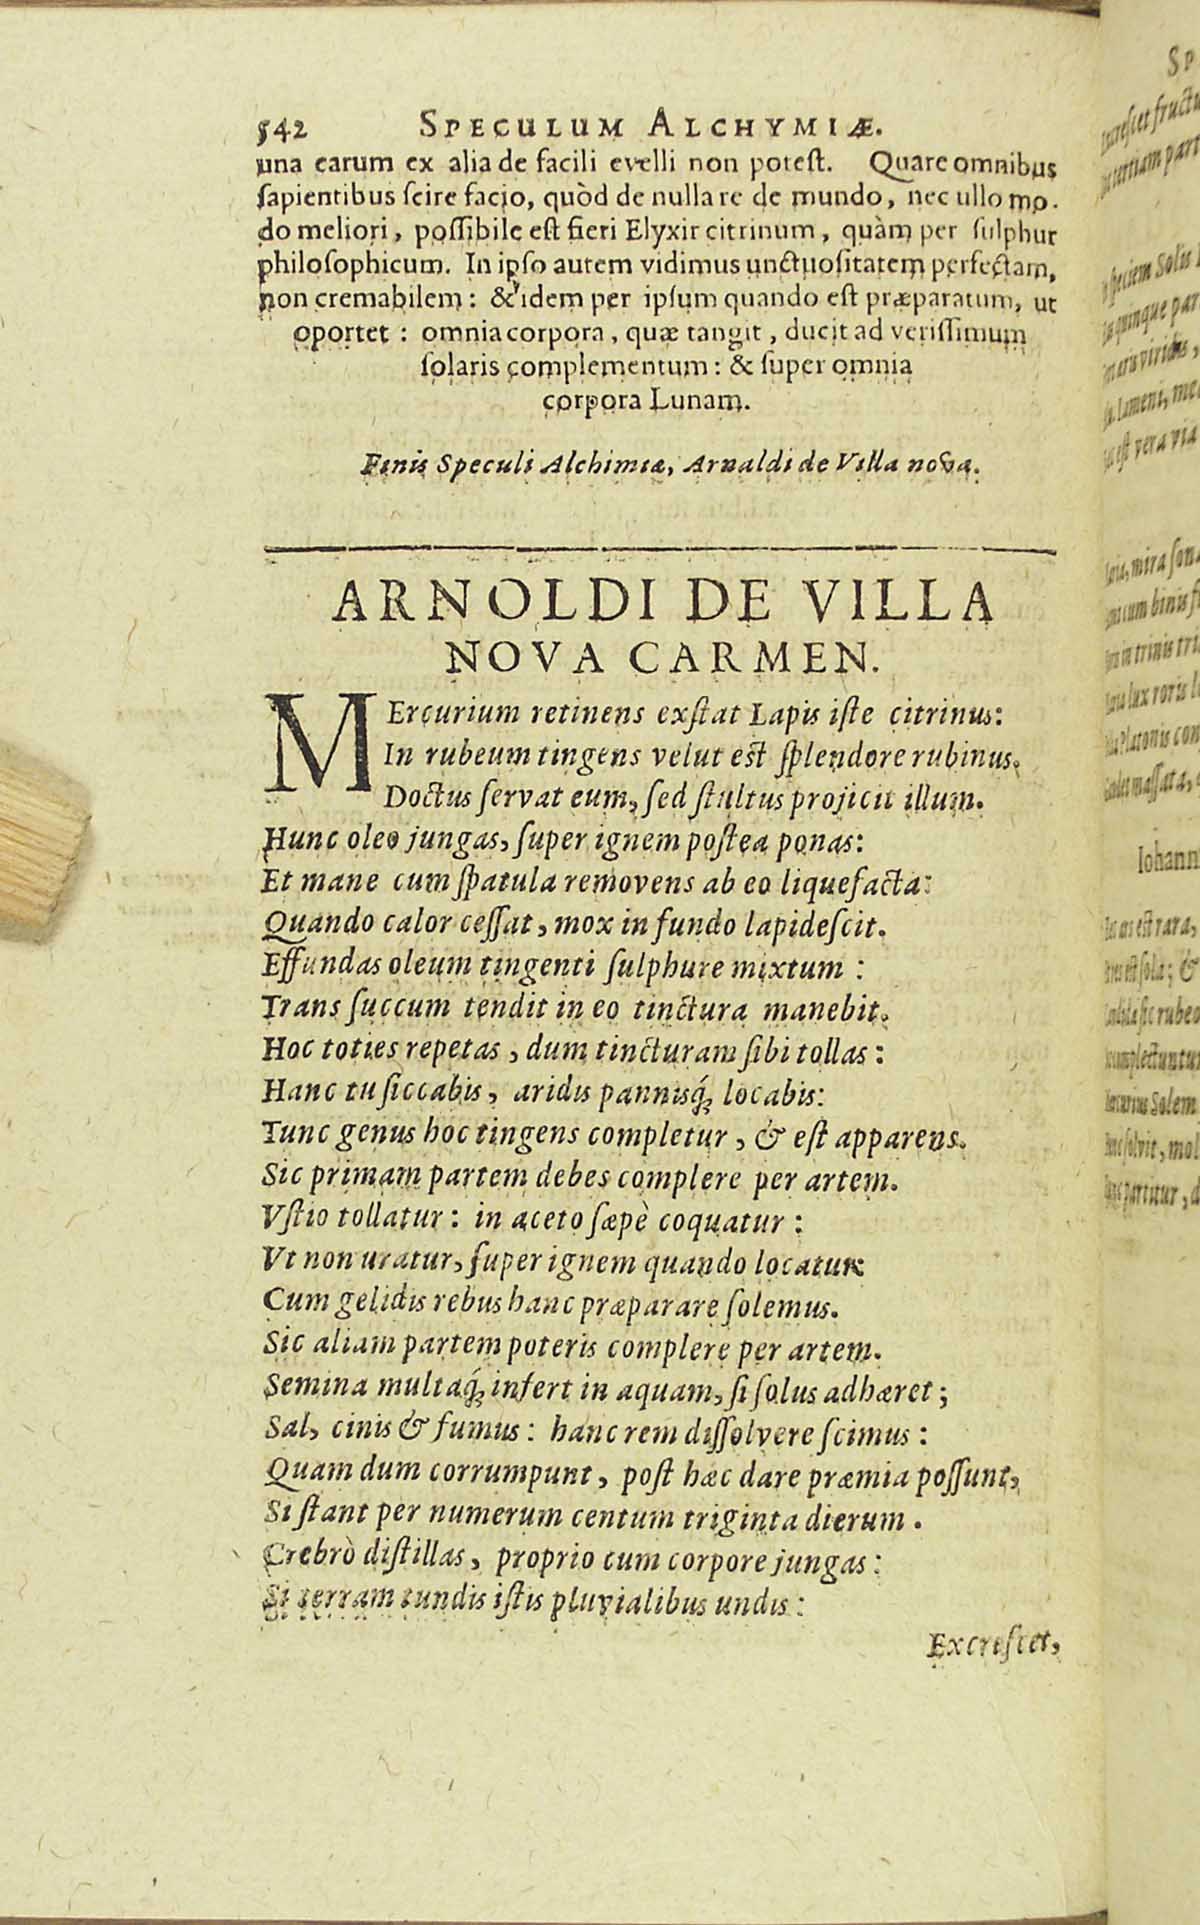 542 SPECULUM ALCHYMIÆ.
una earum ex alia de facili evelli non potest. Quare omnibus
sapientibus scire facio, quòd de nulla re de mundo, nec ullo mo-
do meliori, possibile est fieri Elyxir citrinum, quàm per sulphur
philosophicum. In ipso autem vidimus unctuositatem perfectam,
non cremabilem: & idem per ipsum quando est præparatum, ut
oportet: omnia corpora, quæ tangit, ducit ad verissimum
solaris complementum: & super omnia
corpora Lunam.
Finis Speculi Alchimiæ, Arnaldi de Villa nova.
ARNOLDI DE VILLA
NOVA CARMEN.
MErcurium retinens exstat Lapis iste citrinus:
In rubeum tingens velut est splendore rubinus.
Doctus servat eum, sed stultus projicit illum.
Hunc oleo jungas, super ignem postea ponas:
Et mane cum spatula removens ab eo liquefacta:
Quando calor cessat, mox in fundo lapidescit.
Effundas oleum tingenti sulphure mixtum:
Trans succum tendit in eo tinctura manebit.
Hoc toties repetas, dum tincturam sibi tollas:
Hanc tu siccabis, aridis pannisq́; locabis:
Tunc genus hoc tingens completur, & est apparens.
Sic primam partem debes complere per artem.
Vstio tollatur: in aceto sæpè coquatur:
Vt non uratur, super ignem quando locatur.
Cum gelidis rebus hanc præparare solemus.
Sic aliam partem poteris complere per artem.
Semina multaq́; infert in aquam, si solus adhæret;
Sal, cinis & fumus: hanc rem dissolvere scimus:
Quam dum corrumpunt, post hæc dare præmia possunt,
Si stant per numerum centum triginta dierum.
Crebrò distillas, proprio cum corpore jungas:
Si terram tundis istis pluvialibus undis:
Excrescet,
SP
Excrescet fructu
tertiam part
speciem Solis
quinque par
æris viridis,
est vera via
mira son
cum binis
in trinis tri
lux roris
Platonis con
massata,
Iohann
est rara,
est sola; &
sic rubeo
complectuntur
Mercurius Solem
solvit, mol
partitur, d